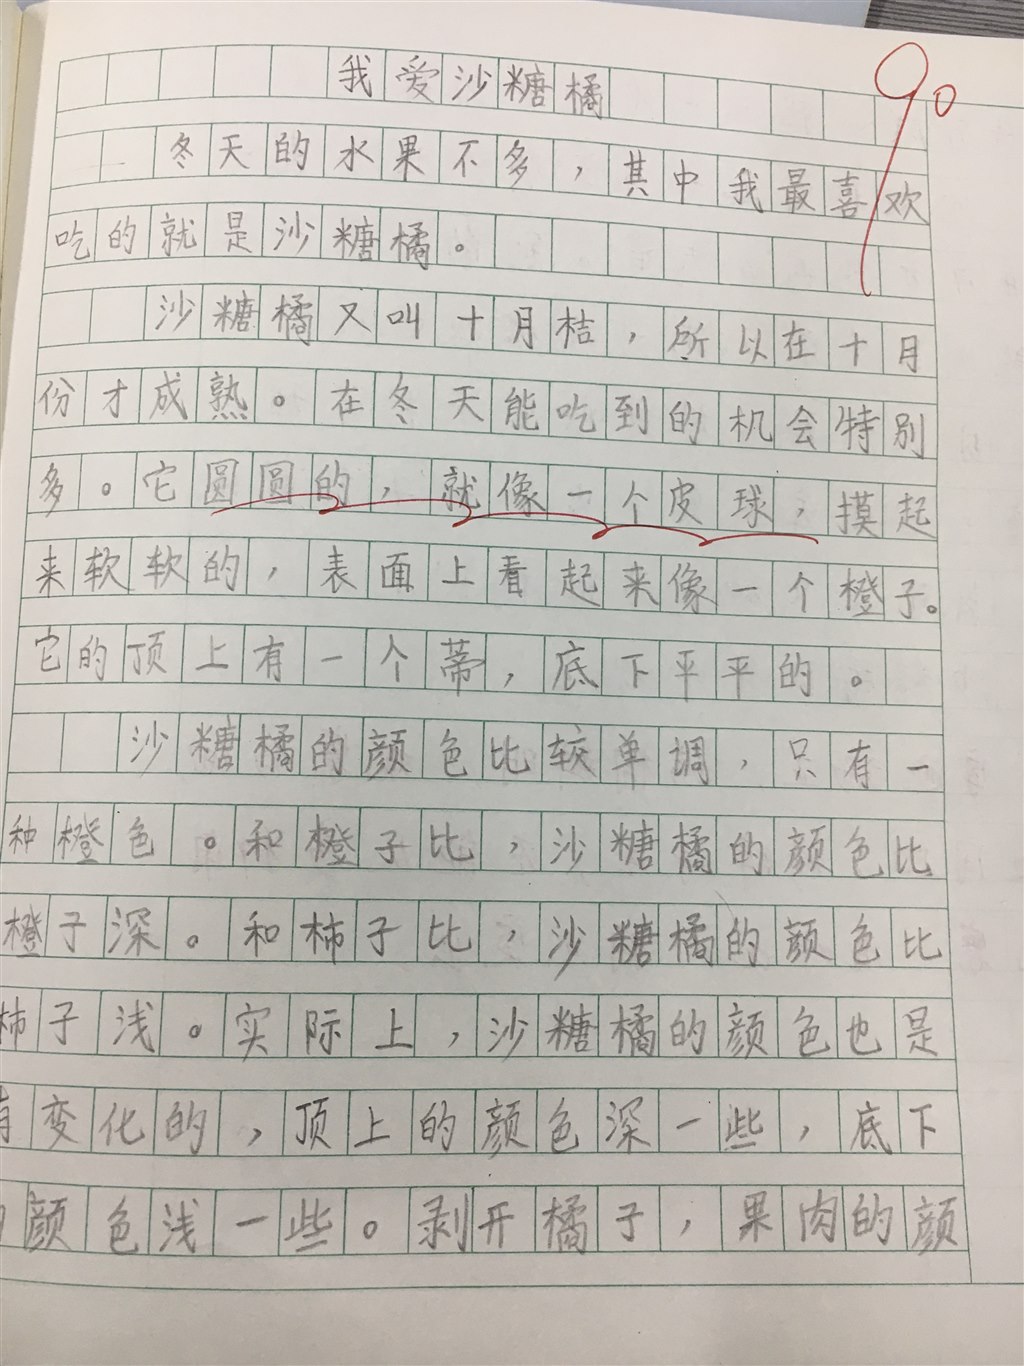 我爱沙糖橘
90
冬天的水果不多，其中我最喜欢
吃的就是沙糖橘。
沙糖橘又叫十月桔，所以在十月
份才成熟。在冬天能吃到的机会特别
多。它圆圆的，就像一个皮球，摸起
来软软的，表面上看起来像一个橙子。
它的顶上有一个蒂，底下平平的。
沙糖橘的颜色比较单调，只有一
种橙色。和橙子比，沙糖橘的颜色比
橙子深。和柿子比，沙糖橘的颜色比
柿子浅。实际上，沙糖橘的颜色也是
有变化的，顶上的颜色深一些，底下
颜色浅一些。剥开橘子，果肉的颜